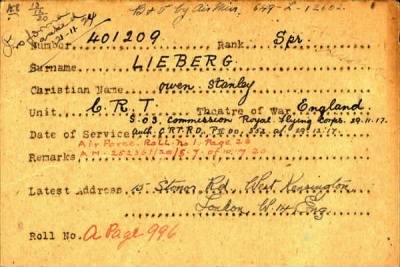 B & V by Air Min. 649-2-12602.
21-11-24
Number 401209 Rank Spr.
Surname LIEBERG.
Christian Name Owen Stanley
Unit C.R.T. Theatre of War England
S.O.S. Commission Royal Flying Corps. 29.11.17.
Date of Service Auth. C.R.T.R.D. Pt II D.O. 352 of 29.12.17.
Air Force. Roll No 1. Page 26
Remarks A M - 252361/20/5.7. of 10.7.20
Latest Address 15 Stonor Rd West Kensington
London, W. 14 Eng
Roll No. A Page 996